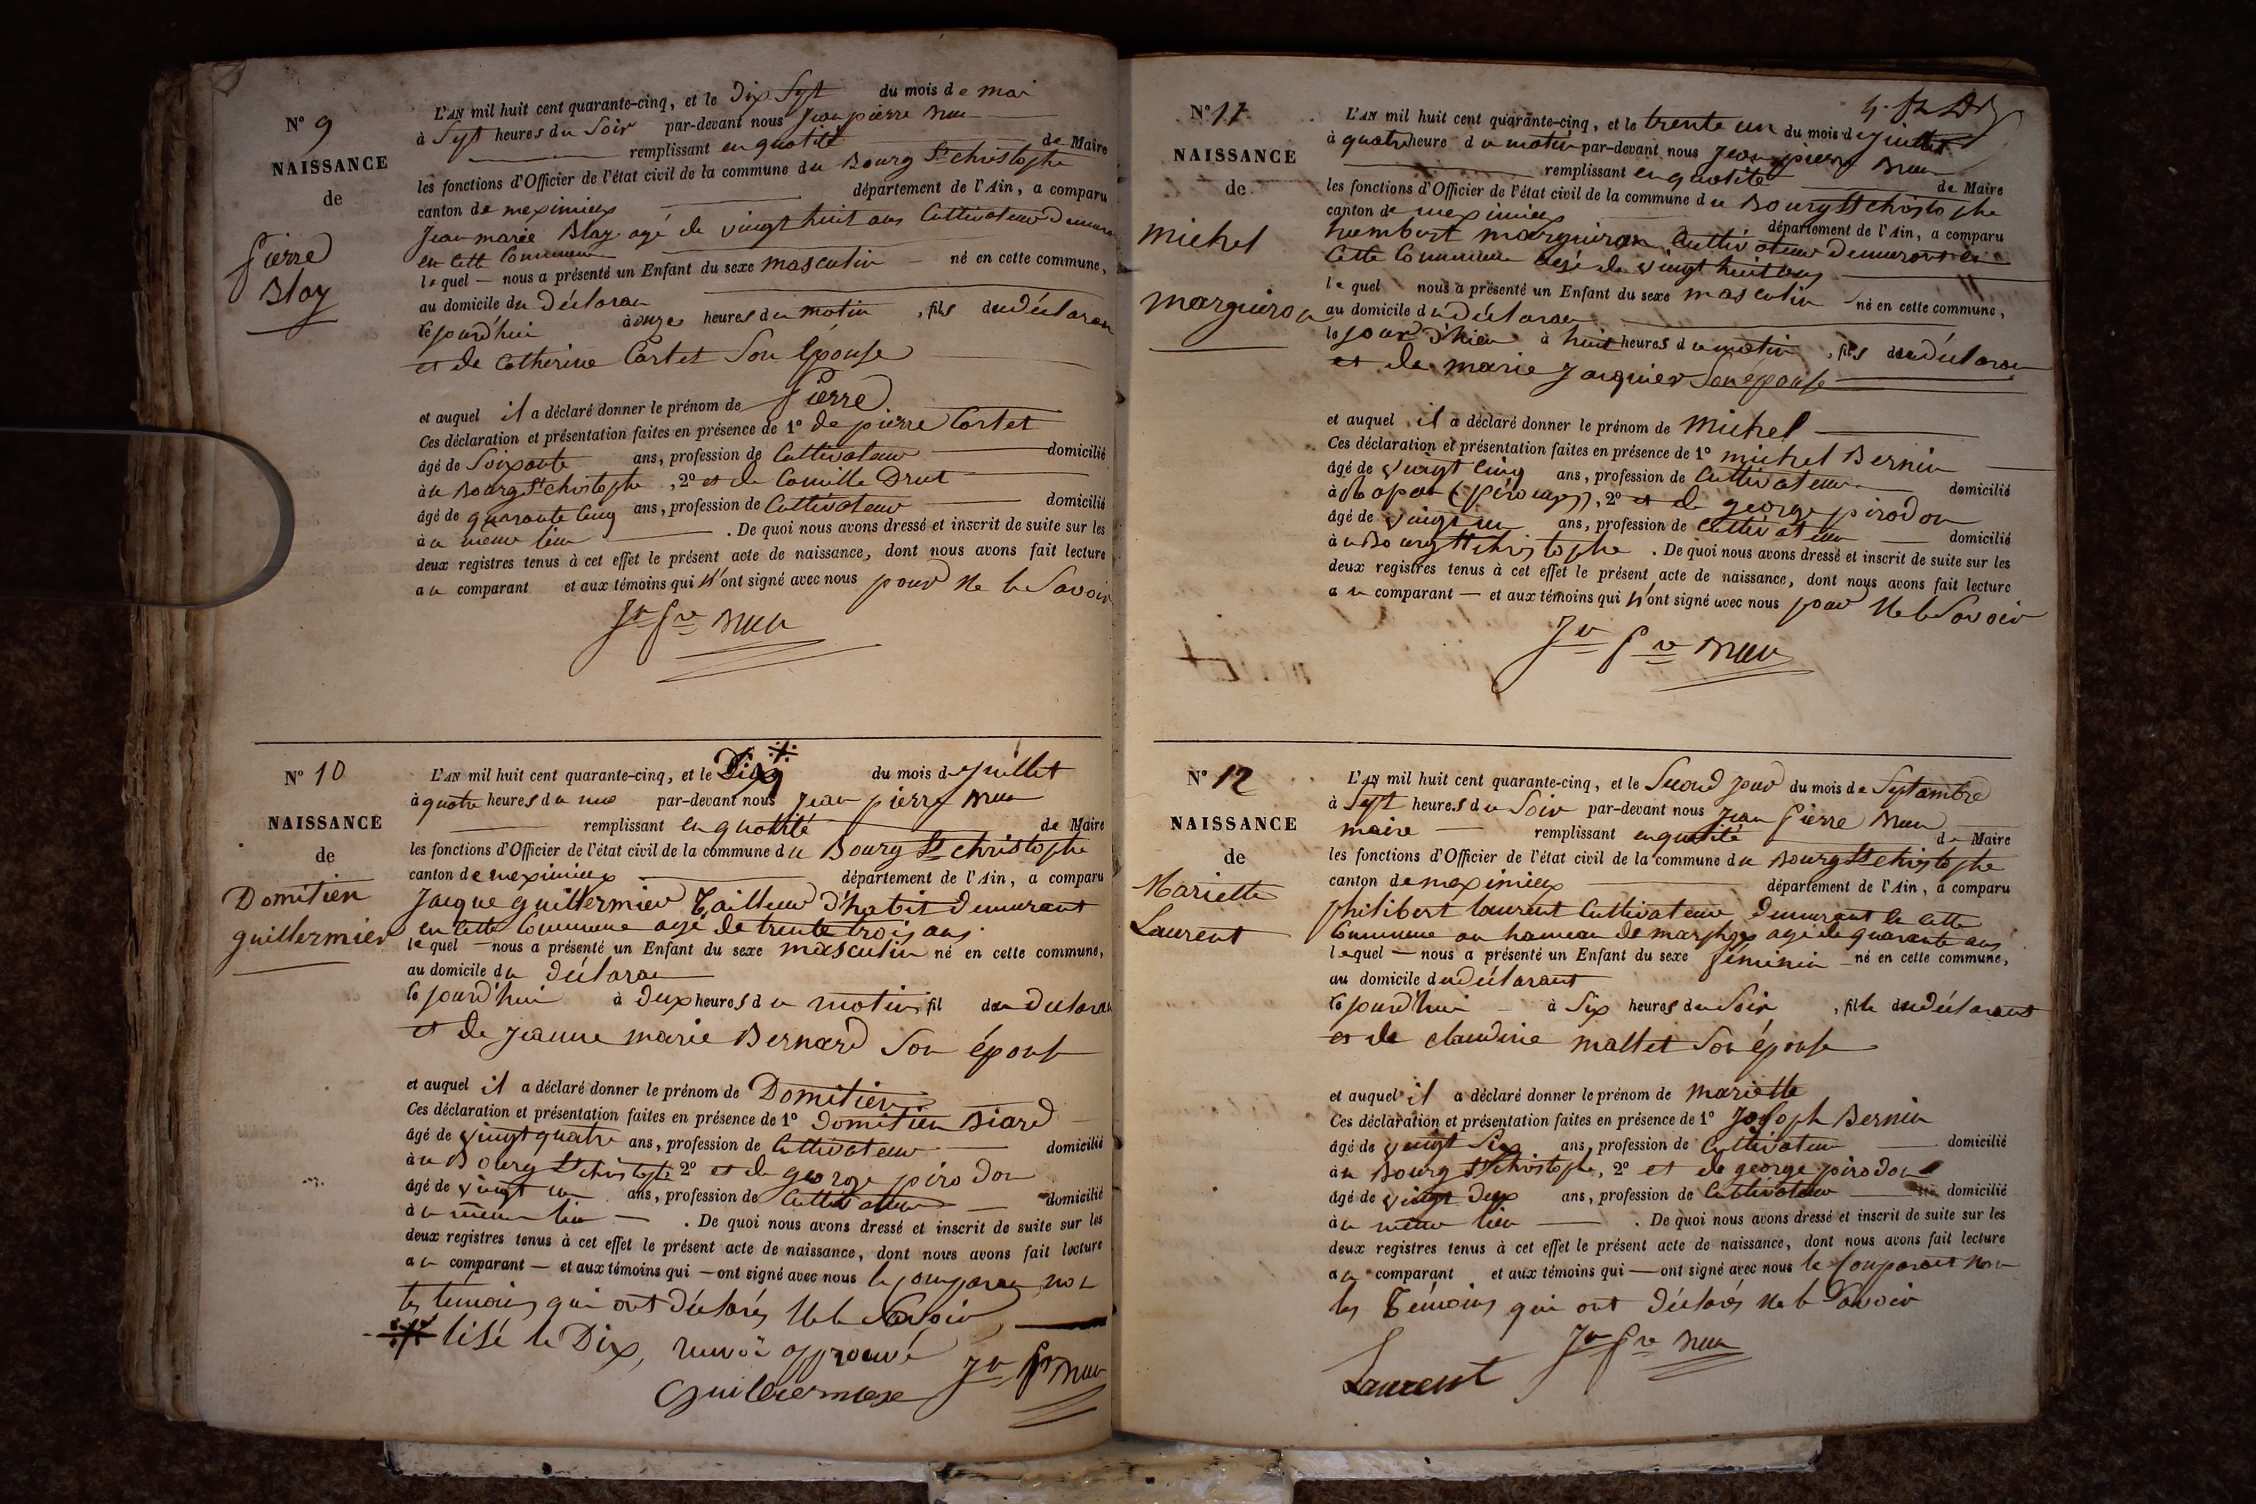 N° 9
NAISSANCE
de
Pierre
Blay
L'AN mil huit cent quarante-cinq, et le Dix Sept du mois de mai
à Sept heures du Soir par-devant nous Jean pierre
remplissant en qualité de Maire
les fonctions d'Officier de l'état civil de la commune du Bourg St christophe
canton de meximieux département de l'Ain, a comparu
Jean marie Blay agé de vingt huit ans Cultivateur Demeuran
en cette Commune
lequel — nous a présenté un Enfant du sexe masculin né en cette commune,
au domicile du déclaran
le jourd'hui à onze heures du matin, fils du déclaran
et de Catherine Cartet Son épouse
et auquel il a déclaré donner le prénom de Pierre
Ces déclaration et présentation faites en présence de 1° de pierre Cortet
âgé de Soixante ans, profession de Cultivateur domicilié
à u Bourg St christophe, 2° et de Camille Drut
âgé de quarante Cinq ans, profession de Cultivateur domicilié
à u meme lieu . De quoi nous avons dressé et inscrit de suite sur les
deux registres tenus à cet effet le présent acte de naissance, dont nous avons fait lecture
au comparant et aux témoins qui n'ont signé avec nous pour ne le Savoir
Jn Pre
N° 10
NAISSANCE
de
Domitien
guillermier
L'AN mil huit cent quarante-cinq, et le Dix du mois de Juillet
à quatre heures du par-devant nous Jean pierre
remplissant en qualité de Maire
les fonctions d'Officier de l'état civil de la commune du Bourg St christophe
canton de meximieux département de l'Ain, a comparu
Jacque guillermier Tailleur d'habit Demeurant
en cette Commune agé de trente trois ans
lequel — nous a présenté un Enfant du sexe masculin né en cette commune,
au domicile du déclaran
le jourd'hui à deux heures du matin, fil du declaran
et de jeanne marie Bernard Son épouse
et auquel il a déclaré donner le prénom de Domitien
Ces déclaration et présentation faites en présence de 1° Domitien Biard
âgé de vingt quatre ans, profession de Cultivateur domicilié
à u Bourg St christophe 2° et de george pirodon
âgé de vingt un ans, profession de Cultivateur domicilié
à u meme lieu — . De quoi nous avons dressé et inscrit de suite sur les
deux registres tenus à cet effet le présent acte de naissance, dont nous avons fait lecture
au comparant — et aux témoins qui — ont signé avec nous le Comparan non
les temoins qui ont déclarés ne le Savoir
lisé le Dix, renvoi approuvé
Guillermier Jn Pre
N° 11
NAISSANCE
de
michel
marguiron
L'AN mil huit cent quarante-cinq, et le trente un du mois de Juillet
à quatre heure du matin par-devant nous Jean pierre
remplissant en qualité de Maire
les fonctions d'Officier de l'état civil de la commune du Bourg St christophe
canton de meximieux département de l'Ain, a comparu
humbert marguiron Cultivateur Demeurant en
Cette Commune agé de vingt huit ans
lequel nous a présenté un Enfant du sexe masculin né en cette commune,
au domicile du déclaran
le jour d'hier à huit heures du matin, fils du déclaran
et de marie Jarquier Son epouse
et auquel il a déclaré donner le prénom de Michel
Ces déclaration et présentation faites en présence de 1° michel Bernin
âgé de vingt Cinq ans, profession de Cultivateur domicilié
à, 2° et de george pirodon
âgé de vingt un ans, profession de Cultivateur domicilié
à u Bourg St christophe . De quoi nous avons dressé et inscrit de suite sur les
deux registres tenus à cet effet le présent acte de naissance, dont nous avons fait lecture
au comparant — et aux témoins qui n'ont signé avec nous pour ne le Savoir
Jn Pre
N° 12
NAISSANCE
de
Mariette
Laurent
L'AN mil huit cent quarante-cinq, et le Second jour du mois de Septambre
à Sept heures du Soir par-devant nous Jean Pierre
maire — remplissant en qualité de Maire
les fonctions d'Officier de l'état civil de la commune du Bourg St christophe
canton de meximieux département de l'Ain, a comparu
philibert laurent Cultivateur Demeurant en cette
Commune au hameau de marphoz agé de quarante ans
lequel — nous a présenté un Enfant du sexe feminin né en cette commune,
au domicile du déclarant
le jourd'hui à Six heures du Soir, fille du déclarant
et de claudine mallet Son épouse
et auquel il a déclaré donner le prénom de mariette
Ces déclaration et présentation faites en présence de 1° Joseph Bernin
âgé de vingt Six ans, profession de Cultivateur domicilié
à u Bourg St christophe, 2° et de george pirodon
âgé de vingt deux ans, profession de Cultivateur domicilié
à u meme lieu — . De quoi nous avons dressé et inscrit de suite sur les
deux registres tenus à cet effet le présent acte de naissance, dont nous avons fait lecture
au comparant et aux témoins qui — ont signé avec nous le Comparant non
les Témoins qui ont déclarés ne le Savoir
Laurent Jn Pre